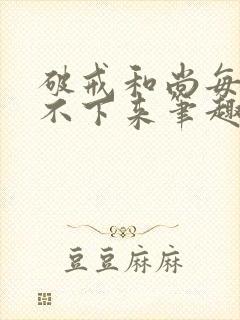 破戒和尚每
不下来笔趣
豆豆麻麻